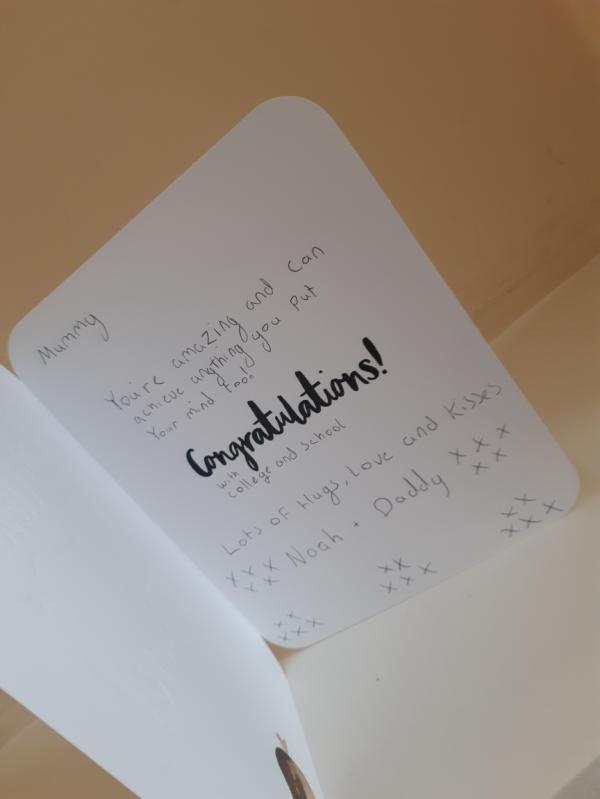 Mummy
You're amazing and can
achieve anything you put
Your mind too!
Congratulations!
with
college and school
Lots of Hugs, Love and Kisses
xxx Noah + Daddy xxx
xx xx
xx xx xx
xxx xxx xxx